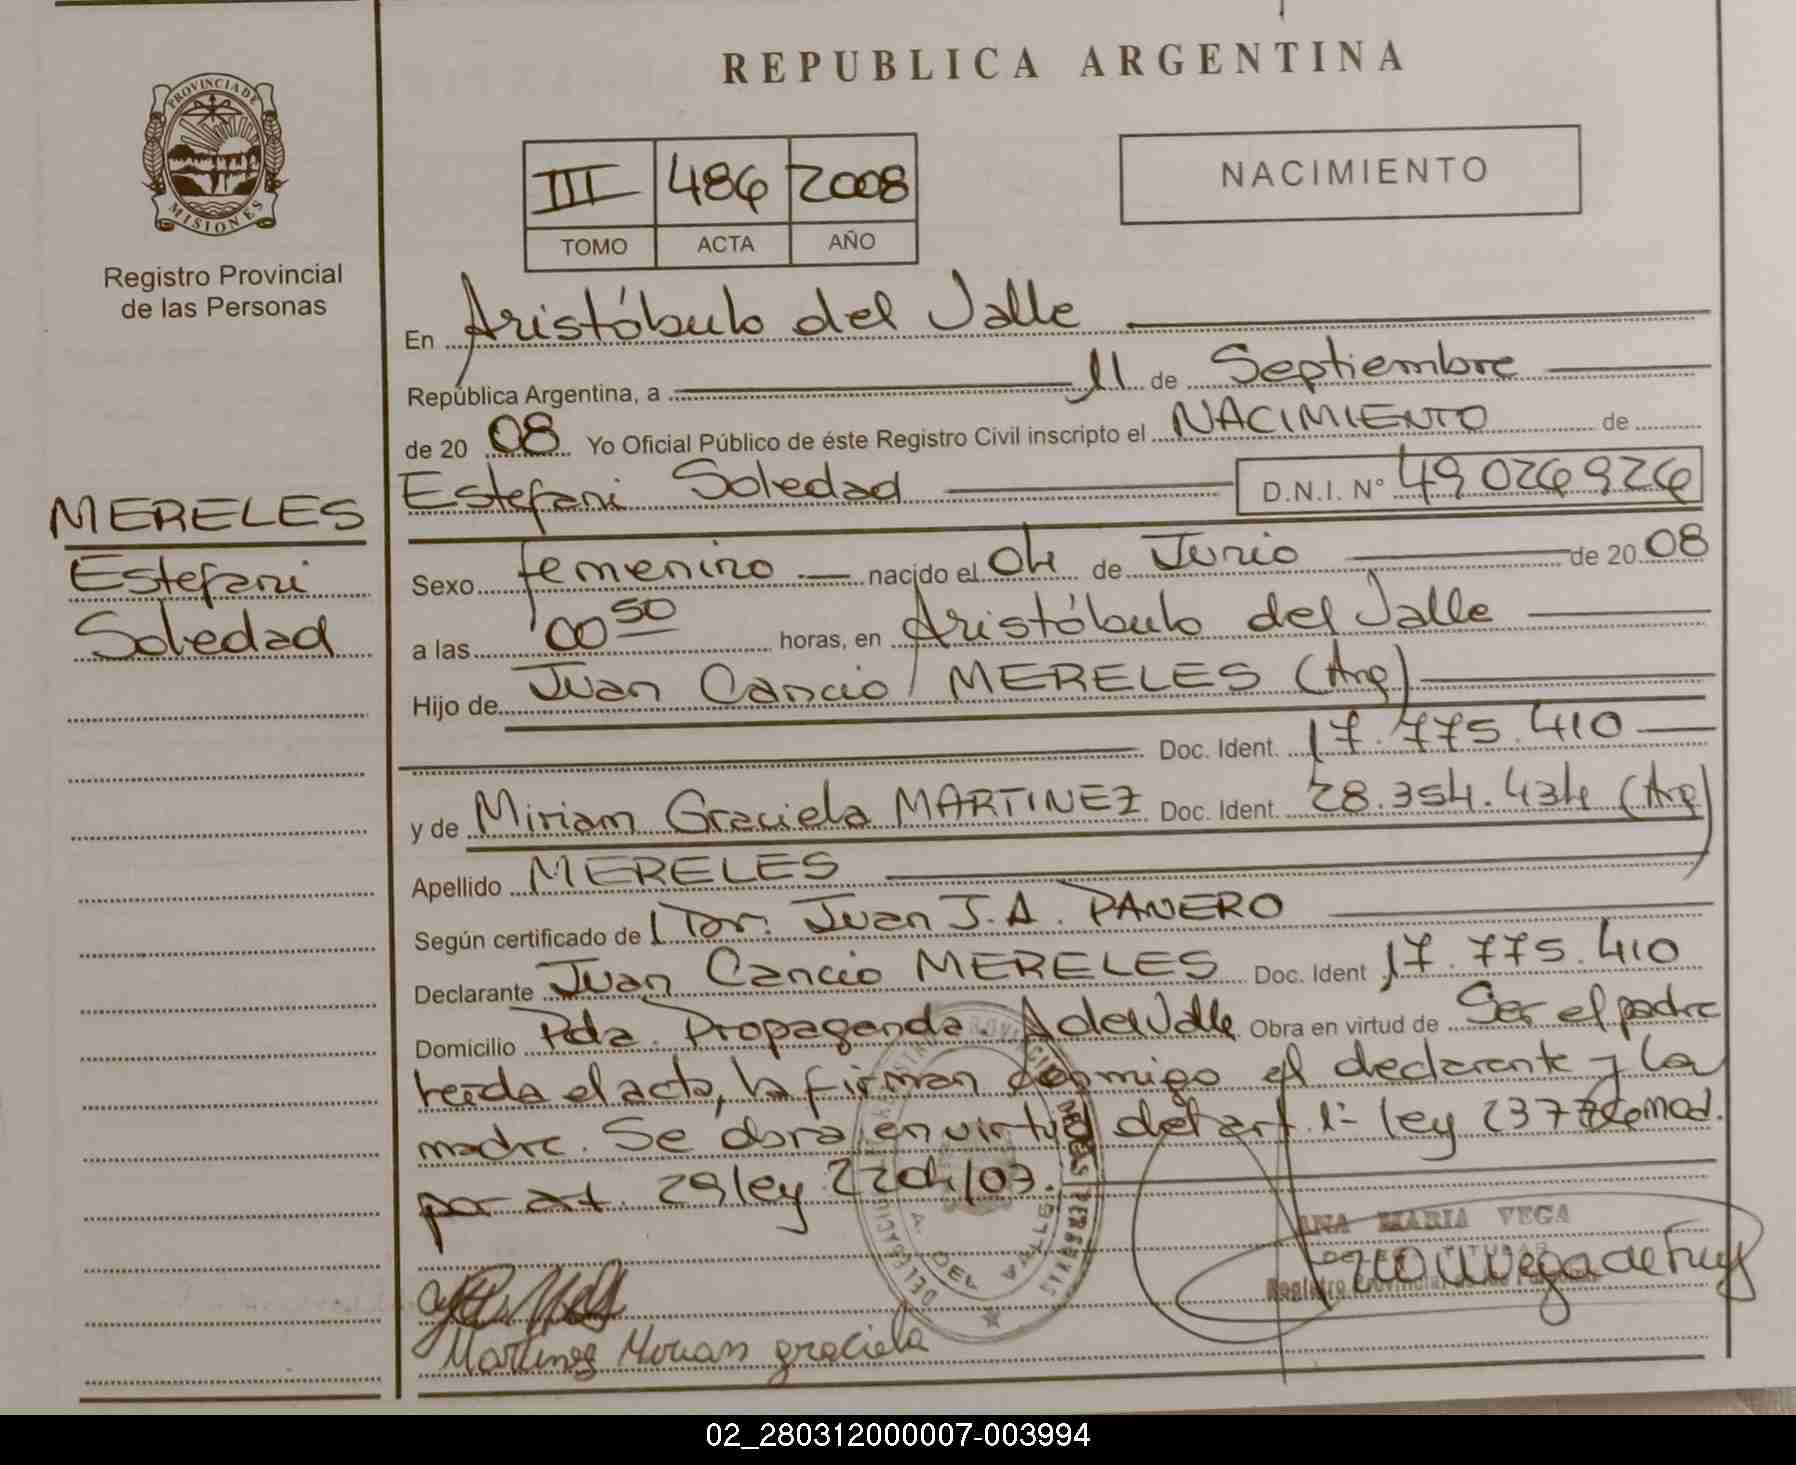 PROVINCIA DE
MISIONES
Registro Provincial
de las Personas
MERELES
Estefani
Soledad
REPUBLICA ARGENTINA
III 486 2008
TOMO ACTA AÑO
NACIMIENTO
En Aristóbulo del Valle
República Argentina, a 11 de Septiembre
de 2008 Yo Oficial Público de éste Registro Civil inscripto el NACIMIENTO de
Estefani Soledad D.N.I. Nº 49 026 926
Sexo femenino nacido el 04 de Junio de 2008
a las 00 50 horas, en Aristóbulo del Valle
Hijo de Juan Cancio MERELES (Arg)
Doc. Ident. 17.775.410
y de Miriam Graciela MARTINEZ Doc. Ident. 28.354.434 (Arg)
Apellido MERELES
Según certificado de Dr. Juan J.A. PANERO
Declarante Juan Cancio MERELES Doc. Ident 17.775.410
Domicilio Pda. Propaganda A del Valle Obra en virtud de Ser el padre
leída el acta, la firman conmigo el declarante y la
madre. Se obra en virtud del art. 1º ley mod.
por art. 29 ley 2204/03.
DELEGACION A. DEL VALLE
ANA MARIA VEGA
Registro Provincial
Martinez Mirian graciela
02_280312000007-003994